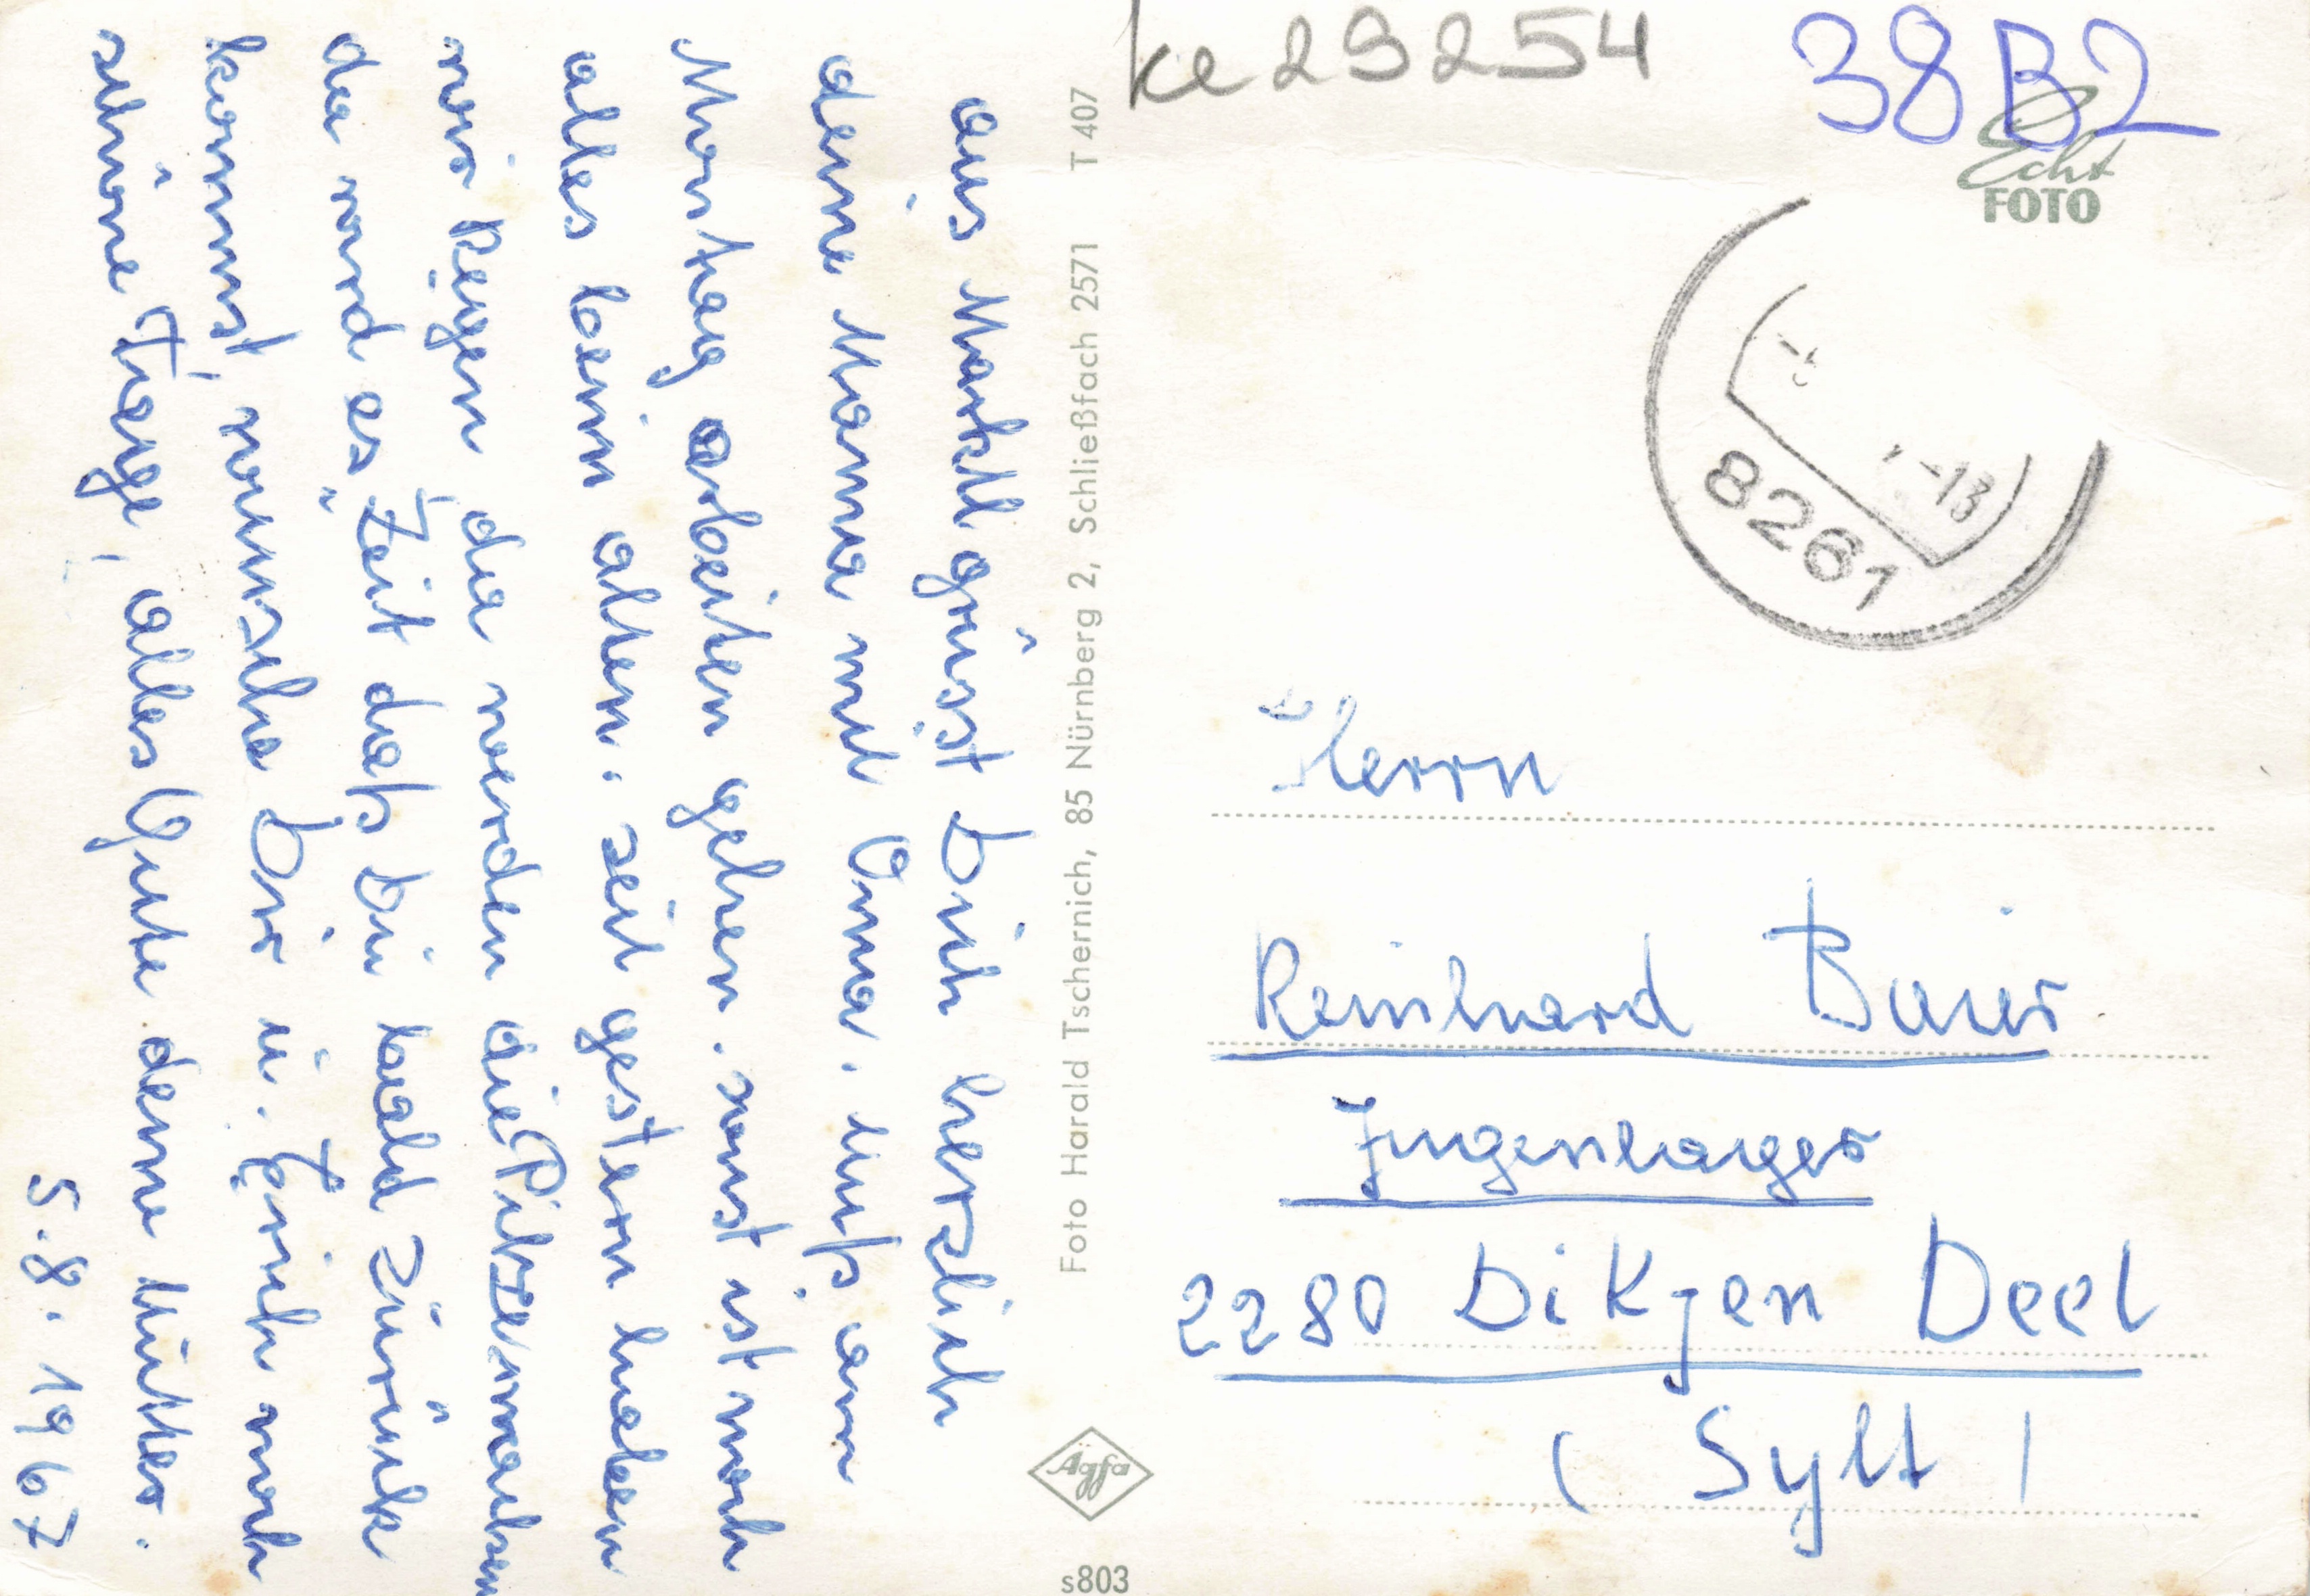 aus Marktl grüsst Dich herzlich
deine Mama mit Oma. Muß am
Montag arbeiten gehen. sonst ist noch
alles beim alten. seit gestern haben
wir Regen, da werden die Pilze wachsen
da wird es Zeit daß Du bald zurük
kommst, wünsche Dir u. Erich noch
schöne Tage, alles Gute deine Mutter.
5.8.1967
Foto Harald Tschernich, 85 Nürnberg 2, Schließfach 2571 T 407
Agfa
s803
ke 29254
38B2
Echt
FOTO
-13
8261
Herrn
Reinhard Baier
Jugenlager
2280 Dikjen Deel
(Sylt)